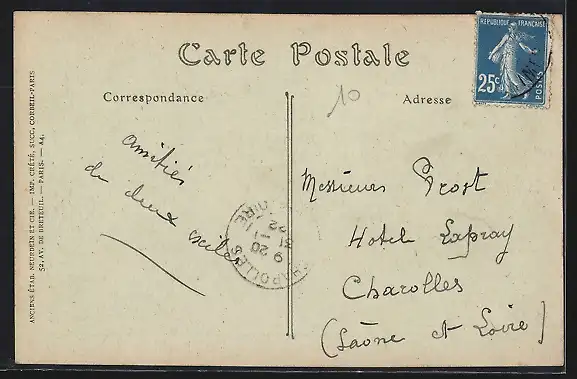 Carte Postale
RÉPUBLIQUE FRANÇAISE
25c
POSTES
Correspondance
Adresse
10
amitiés
de deux
CHAROLLES
Messieurs Prost
Hotel Lapray
Charolles
(Saône et Loire)
ANCIENS ÉTAB. NEURDEIN ET CIE. — IMP. CRÉTÉ, SUCC, CORBEIL-PARIS
52, AV. DE BRETEUIL. — PARIS. — A4.